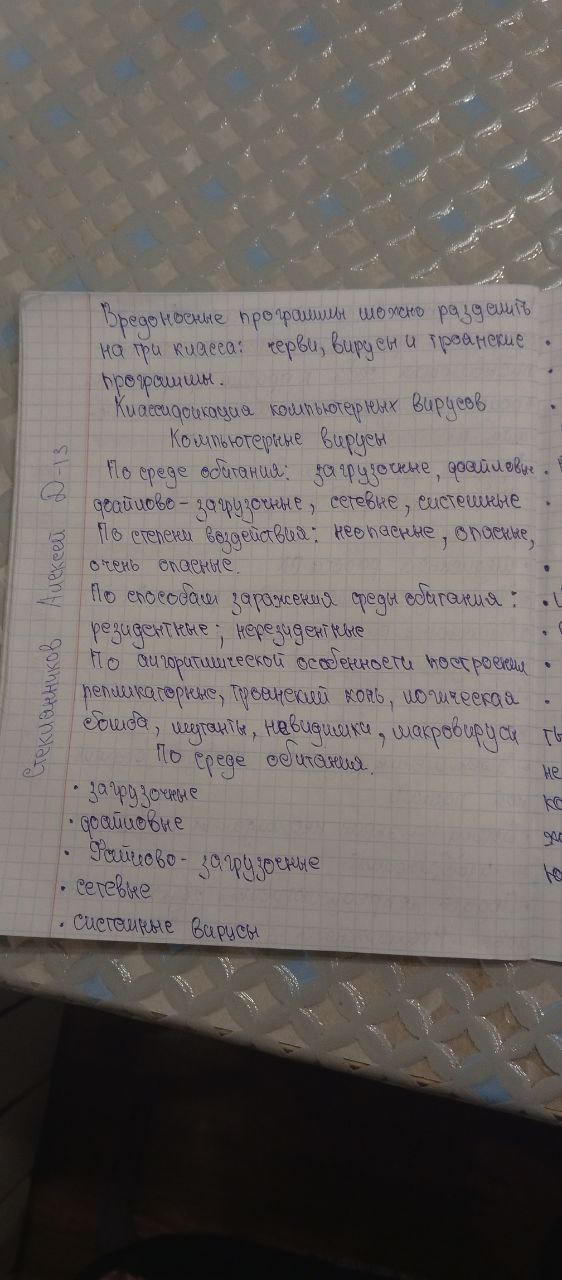 Вредоносные программы можно разделить
на три класса: черви, вирусы и троянские
программы.
Классификация компьютерных вирусов
Компьютерные вирусы
По среде обитания: загрузочные, файловые
файлово-загрузочные, сетевые, системные
По степени воздействия: неопасные, опасные,
очень опасные.
По способам заражения среды обитания:
резидентные; нерезидентные
По алгоритмической особенности построения
репликаторные, троянский конь, логическая
бомба, мутанты, невидимки, макровирусы
По среде обитания.
• загрузочные
• файловые
• Файлово-загрузочные
• сетевые
• системные вирусы
Стеклянников Алексей Д-13